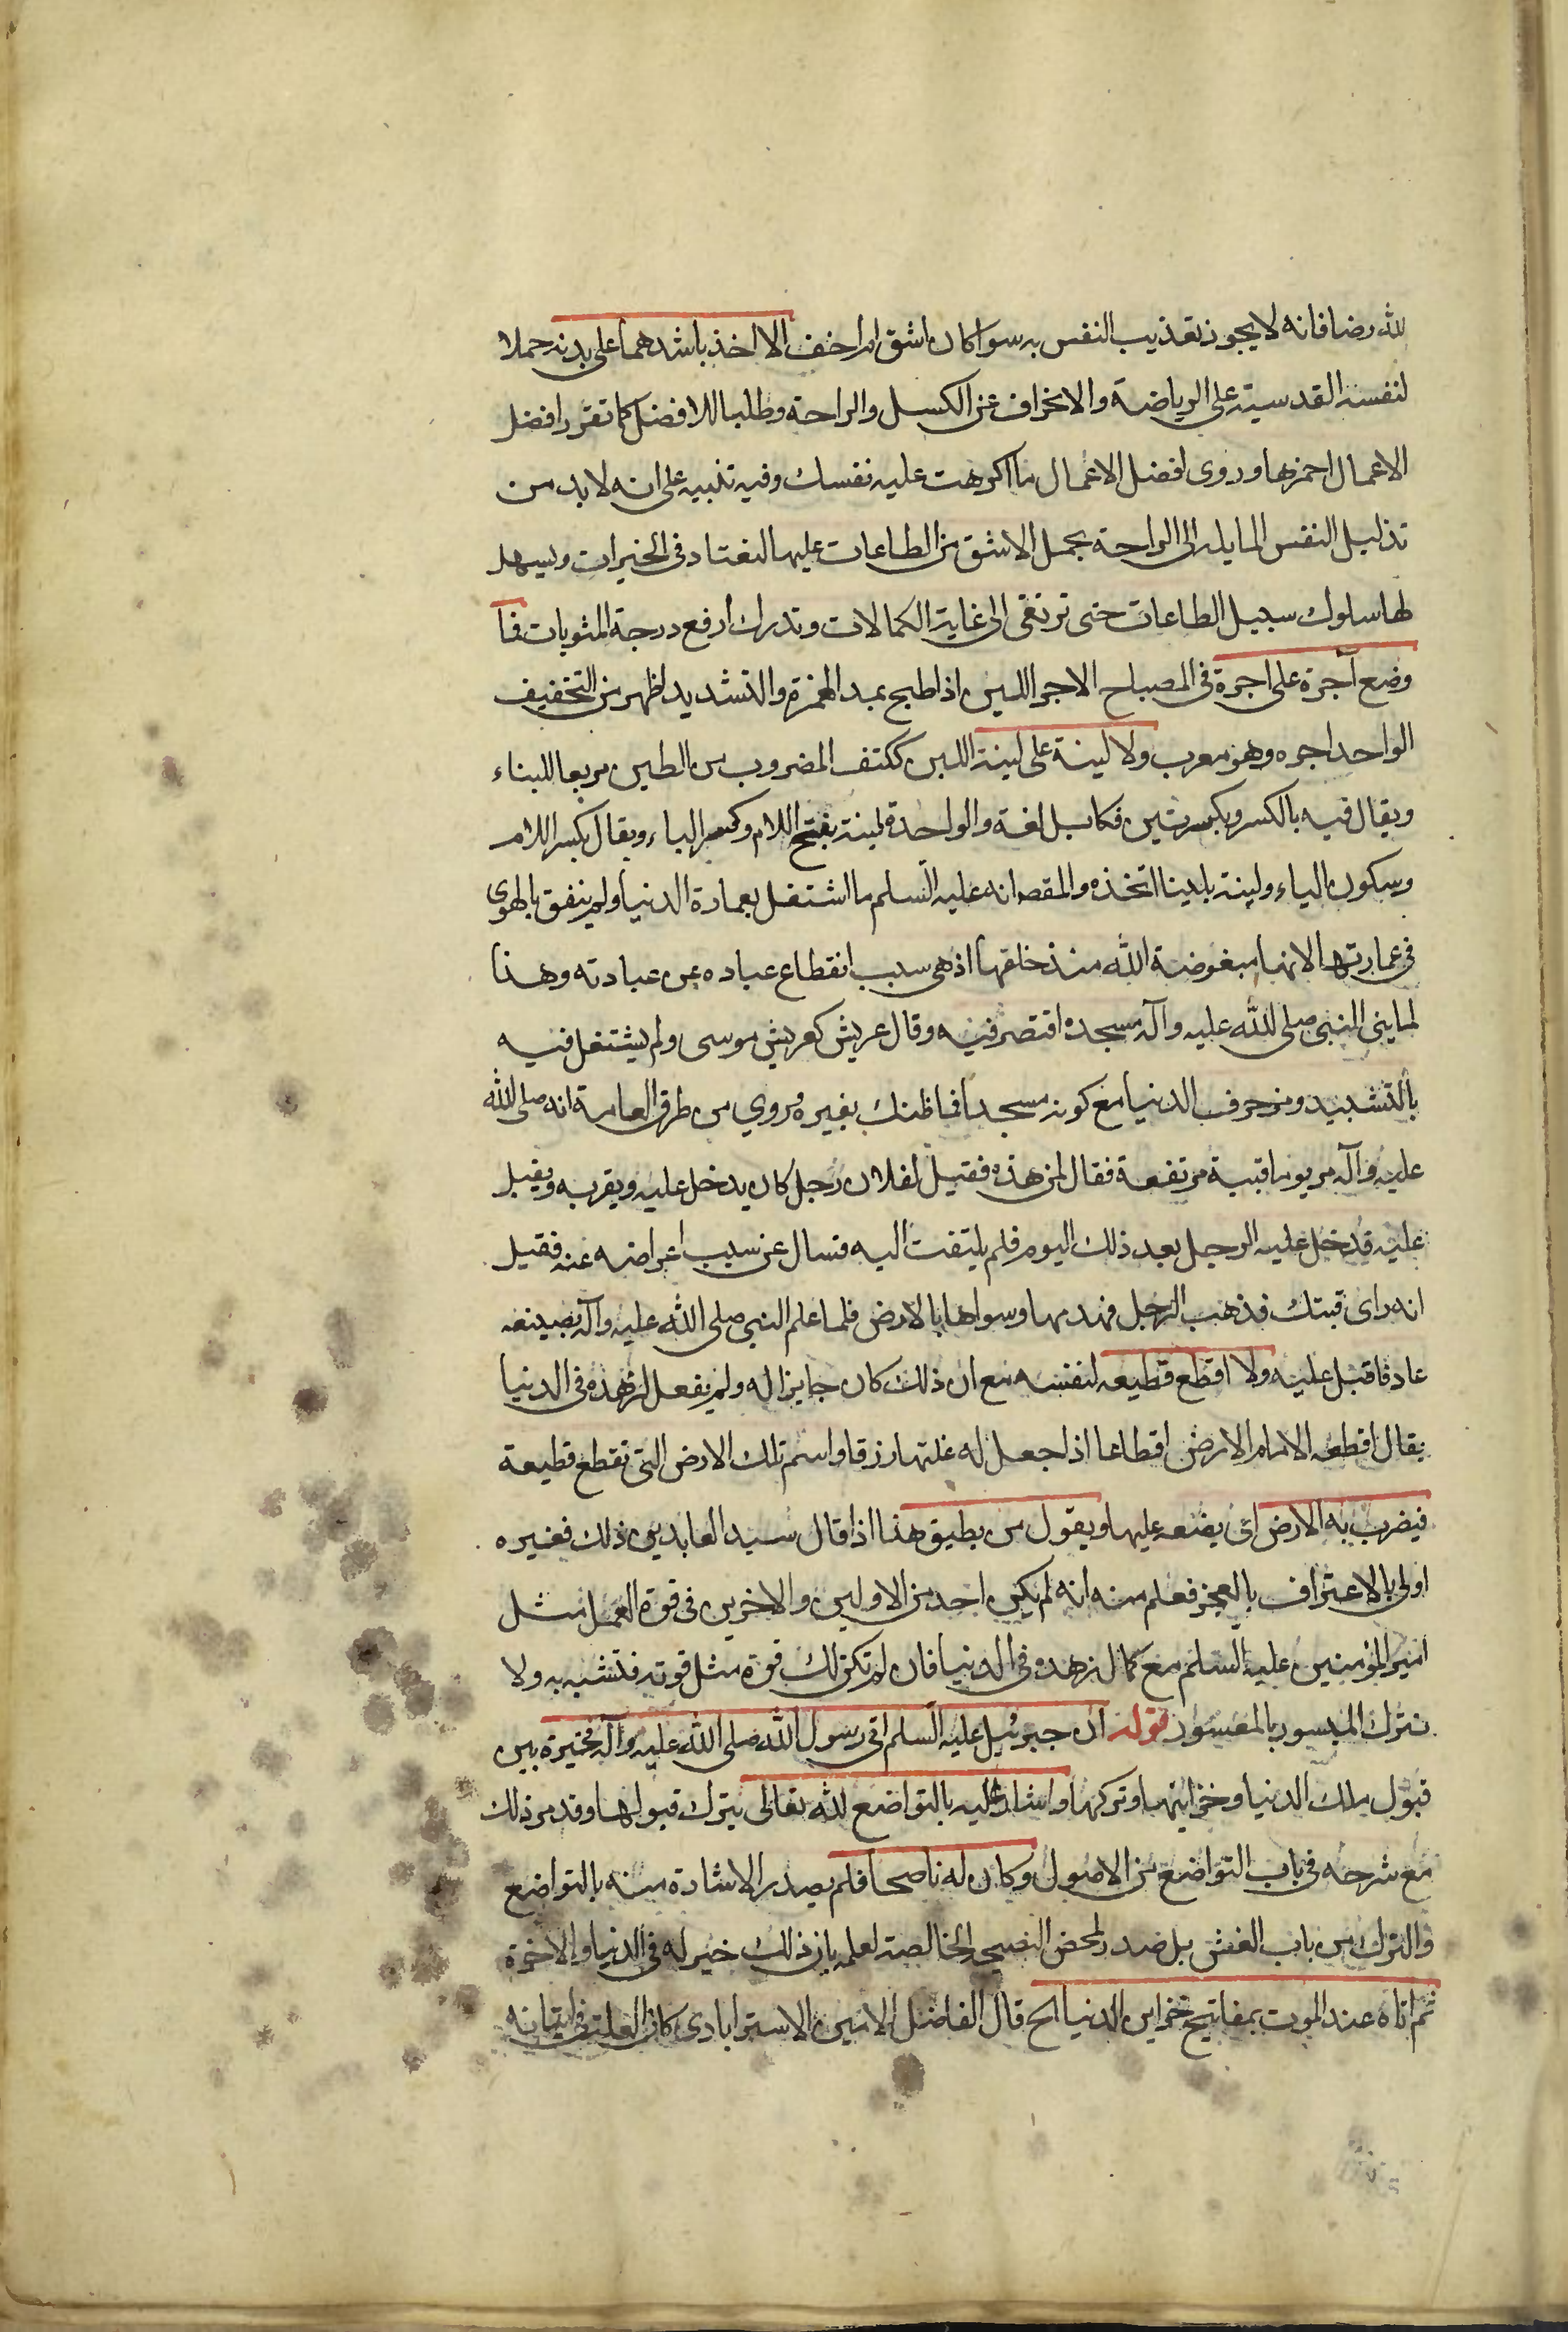 لله رضا فانه لا يجوز تعذيب النفس به سوا كان اشق ام اخف الا اخذ باشدهما على بدنه حملا
لنفسه القدسية على الرياضة والانحراف عن الكسل والراحة وطلبا للافضل كما تقرر افضل
الاعمال احمزها وروى افضل الاعمال ما اكرهت عليه نفسك وفيه تنبيه على انه لا بد من
تذليل النفس المايلة الى الراحة بحمل الاشق من الطاعات عليها لتعتاد في الخيرات ويسهل
لها سلوك سبيل الطاعات حتى ترتقى الى غاية الكمالات وتدرك ارفع درجة المثوبات فما
وضع آجرة على اجرة في المصباح الاجر اللبن اذا طبخ بمد الهمزة والتشديد اظهر من التخفيف
الواحد اجره وهو معرب ولا لبنة على لبنة اللبن ككتف المضروب من الطين مربعا للبناء
ويقال فيه بالكسر وبكسرتين فكابل لغة والواحدة لبنة بفتح اللام وكسر الباء ويقال بكسر اللام
وسكون الباء ولبنة بلبنا اتخذه والمقصد انه عليه السلم ما اشتغل بعمارة الدنيا ولم ينفق بالهوى
في عمارتها لانها مبغوضة الله منذ خلقها اذ هى سبب انقطاع عباده عن عبادته وهذا
لما بنى النبي صلى الله عليه وآله مسجده اقتصر فيه وقال عريش كعريش موسى ولم يشتغل فيه
بالتشييد وزخرف الدنيا مع كونه مسجدا فما ظنك بغيره وروي من طرق العامة انه صلى الله
عليه وآله مر يوما قبية مرتفعة فقال لمن هذه فقيل لفلان رجل كان يدخل عليه ويقربه ويقبل
عليه فدخل عليه الرجل بعد ذلك اليوم فلم يلتفت اليه فسال عن سبب اعراضه عنه فقيل
انه راى قبتك فذهب الرجل فهدمها وسواها بالارض فلما علم النبي صلى الله عليه وآله بصنيعه
عاد فاقبل عليه ولا اقطع قطيعه لنفسه مع ان ذلك كان جايزا له ولم يفعل لزهده في الدنيا
يقال اقطعه الامام الارض اقطاعا اذا جعل له غلتها رزقا واسم تلك الارض التي تقطع قطيعة
فيضرب به الارض اى يضعه عليها ويقول من يطيق هذا اذا قال سيد العابدين ذلك فغيره
اولى بالاعتراف بالعجز فعلم منه انه لم يكن احد من الاولين والاخرين في قوة العمل مثل
امير المؤمنين عليه السلم مع كمال زهده في الدنيا فان لم تكن لك قوة مثل قوته فتشبه به ولا
تترك الميسور بالمعسور قوله ان جبرئيل عليه السلم اتى رسول الله صلى الله عليه وآله فخيره بين
قبول ملك الدنيا وخزاينها وتركها واشار عليه بالتواضع لله تعالى بترك قبولها وقد مر ذلك
مع شرحه في باب التواضع من الاصول وكان له ناصحا فلم يصدر الاشارة منه بالتواضع
والترك من باب الغش بل صدر لمحض النصيحة الخالصة لعلمه بان ذلك خير له في الدنيا والاخرة
ثم اتاه عند الموت بمفاتيح خزاين الدنيا الخ قال الفاضل الامين الاسترابادى كان العلة في اتيانه